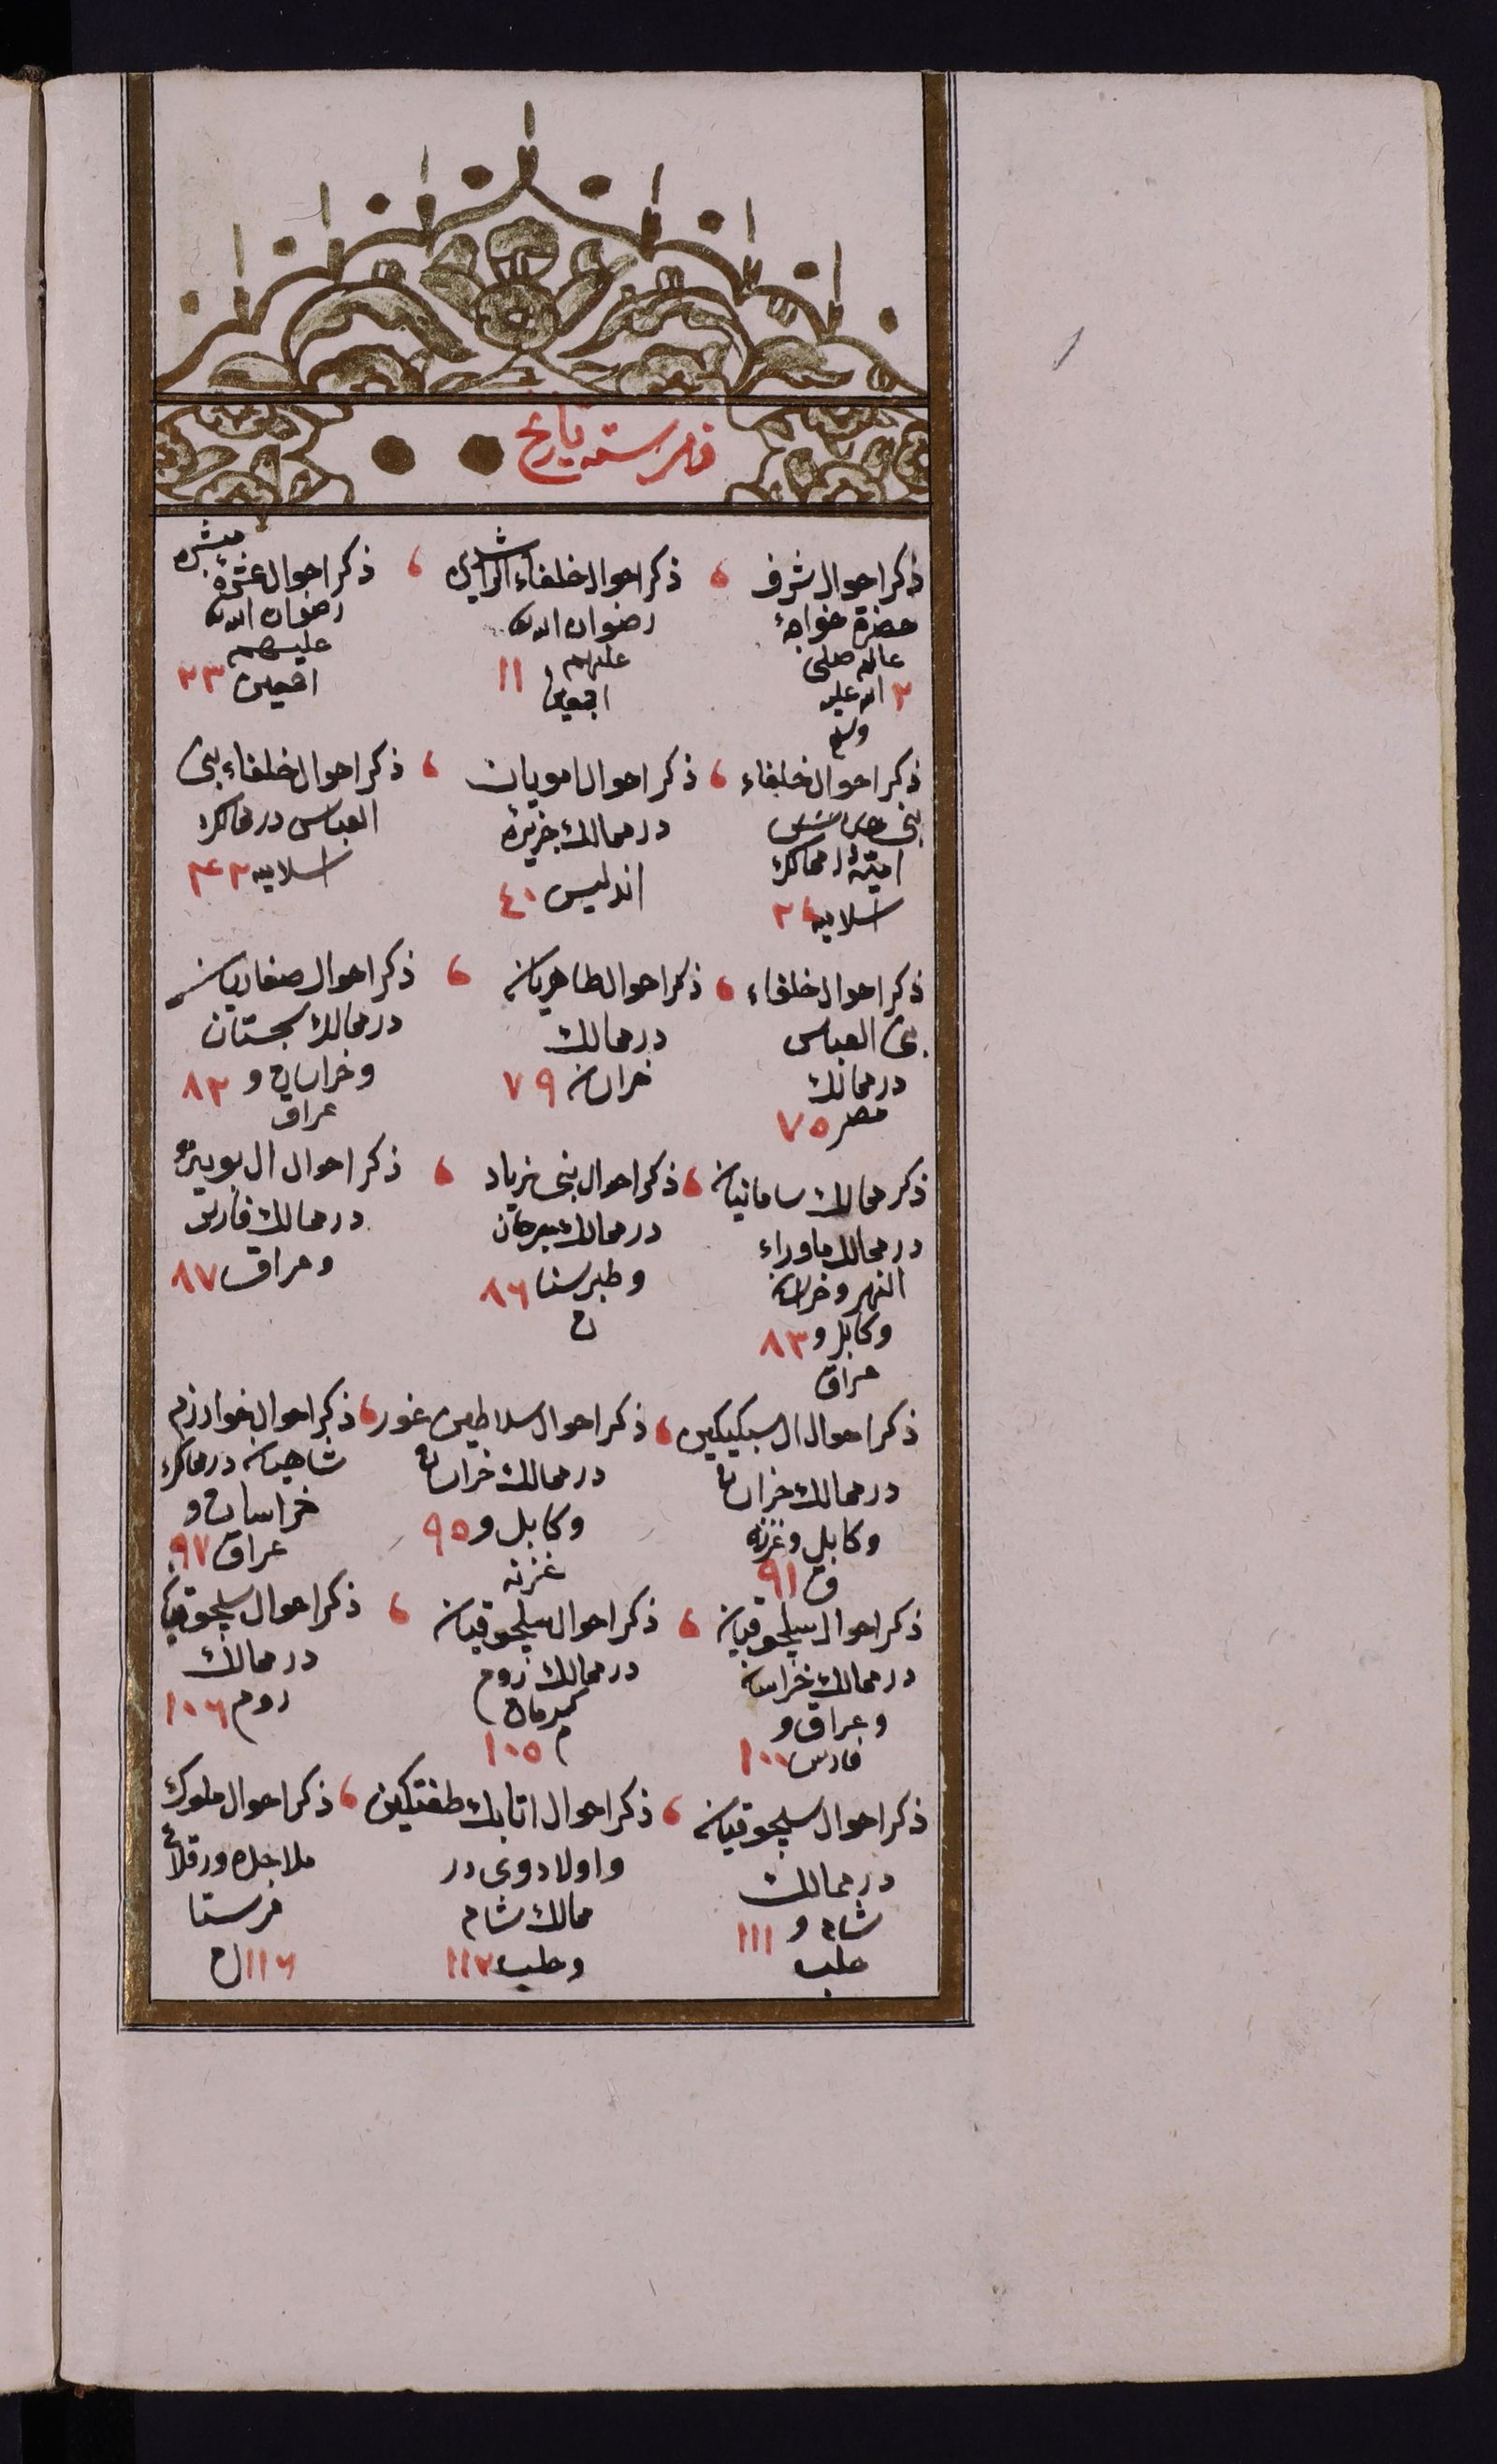 فهرسته تاریخ
ذکر احوال شرف
حضرة خواجهٔ
عالم صلی
الله علیه ٢
وسلم
ذکر احوال خلفاء الراشدین
رضوان الله
علیهم
اجمعین ١١
ذکر احوال عشرهٔ مبشره
رضوان الله
علیهم
اجمعین ٢٣
ذکر احوال خلفاء
بنی
امیّه در ممالک
اسلامیه ٢٤
ذکر احوال امویان
در ممالك جزیرهٔ
اندلیس ٤٠
ذکر احوال خلفاء بنی
العباس در ممالک
اسلامیه ٤٢
ذکر احوال خلفاء
بنی العباس
در ممالك
مصر ٧٥
ذکر احوال طاهریان
در ممالك
خراسان ٧٩
ذکر احوال صفاریان
در ممالك سجستان
و خراسان و ٨٢
عراق
ذکر ممالك سامانیان
در ممالك ماوراء
النهر و خراسان
و کابل و ٨٣
عراق
ذکر احوال بنی زیاد
در ممالك جرجان
و طبرستا ٨٦
ن
ذکر احوال ال بویهٔ
در ممالك فارس
و عراق ٨٧
ذکر احوال ال سبکتکین
در ممالك خراسان
و کابل و غزنه
٩١
ذکر احوال سلاطین غور
در ممالك خراسان
و کابل و ٩٥
غزنه
ذکر احوال خوارزم
شاهیان در ممالک
خراسان و
عراق ٩٧
ذکر احوال سلجوقیان
در ممالك خراسان
و عراق و
فارس ١٠٠
ذکر احوال سلجوقیان
در ممالك روم
کرمان
م ١٠٥
ذکر احوال سلجوقیان
در ممالك
روم ١٠٦
ذکر احوال سلجوقیان
در ممالك
شام و ١١١
حلب
ذکر احوال اتابك طغتکین
و اولاد وی در
ممالك شام
و حلب ١١٢
ذکر احوال ملوک
ملاحده در قلاع
١١٦